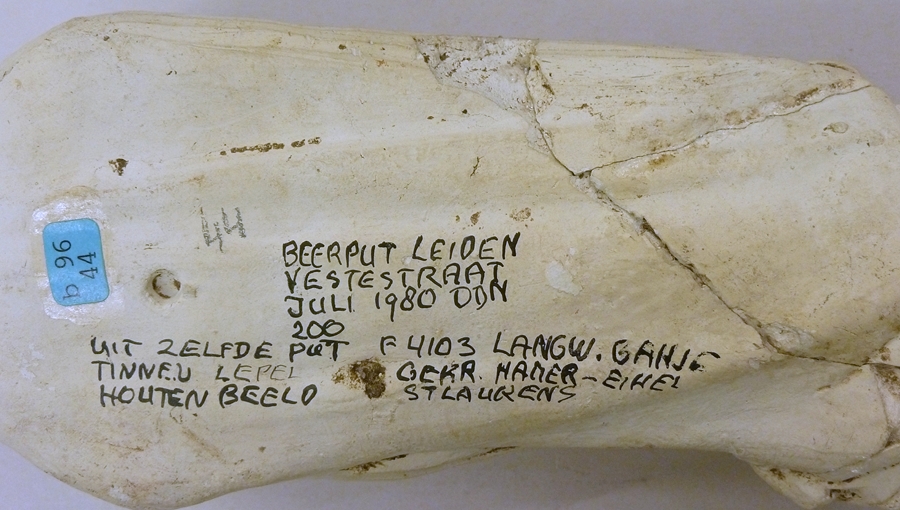 b 96
44
BEERPUT LEIDEN
VESTESTRAAT
JULI 1980 DDN
200
UIT ZELFDE PUT
TINNEN LEPEL
HOUTEN BEELD
F 4103 LANGW.
GEKR. HAMER-EIKEL
ST LAURENS